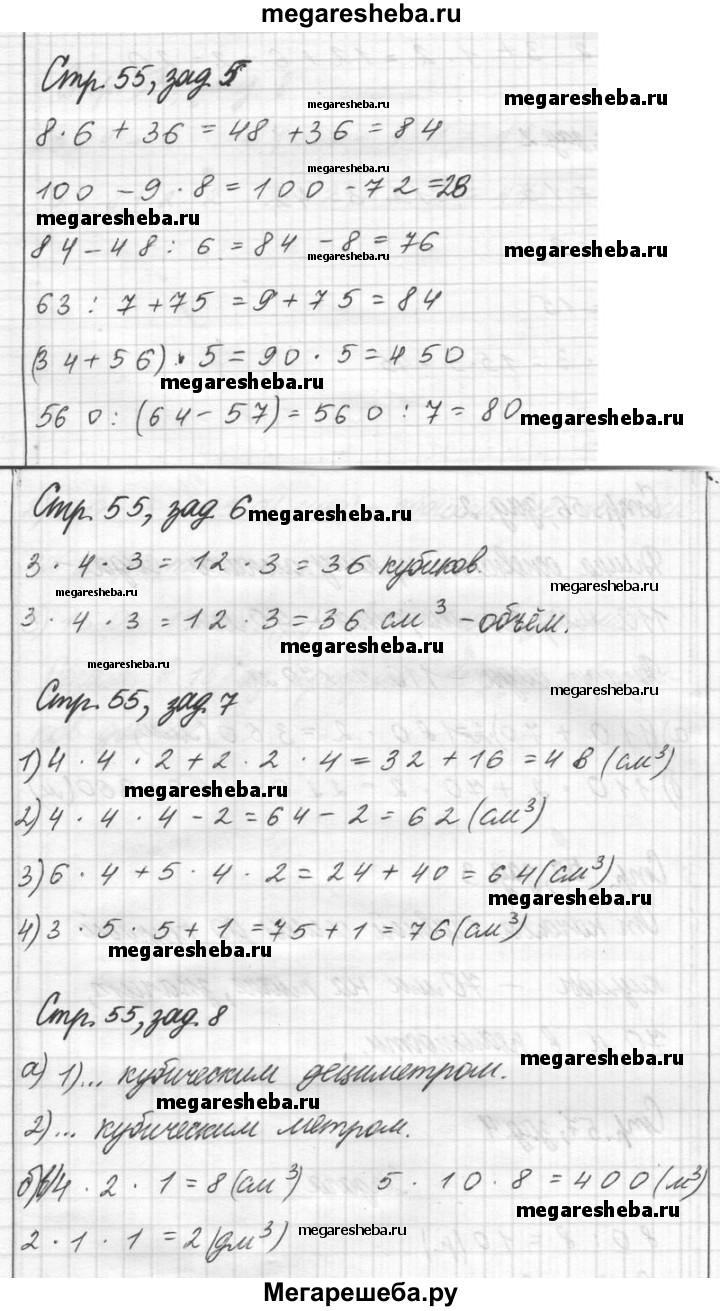 megaresheba.ru
Стр. 55, зад 5
megaresheba.ru
megaresheba.ru
8 · 6 + 36 = 48 + 36 = 84
megaresheba.ru
100 - 9 · 8 = 100 - 72 = 28
megaresheba.ru
84 - 48 : 6 = 84 - 8 = 76
megaresheba.ru
megaresheba.ru
63 : 7 + 75 = 9 + 75 = 84
(34 + 56) · 5 = 90 · 5 = 450
megaresheba.ru
560 : (64 - 57) = 560 : 7 = 80
megaresheba.ru
Стр. 55, зад 6
megaresheba.ru
3 · 4 · 3 = 12 · 3 = 36 кубиков.
megaresheba.ru
megaresheba.ru
3 · 4 · 3 = 12 · 3 = 36 см³ - объём.
megaresheba.ru
megaresheba.ru
megaresheba.ru
Стр. 55, зад. 7
1) 4 · 4 · 2 + 2 · 2 · 4 = 32 + 16 = 48 (см³)
megaresheba.ru
2) 4 · 4 · 4 - 2 = 64 - 2 = 62 (см³)
3) 6 · 4 + 5 · 4 · 2 = 24 + 40 = 64 (см³)
megaresheba.ru
4) 3 · 5 · 5 + 1 = 75 + 1 = 76 (см³)
megaresheba.ru
Стр. 55, зад. 8
а) 1)... кубическим дециметром.
megaresheba.ru
megaresheba.ru
2)... кубическим метром.
б) 4 · 2 · 1 = 8 (см³) 5 · 10 · 8 = 400 (м³)
megaresheba.ru
2 · 1 · 1 = 2 (дм³)
megaresheba.ru
Мегарешеба.ру